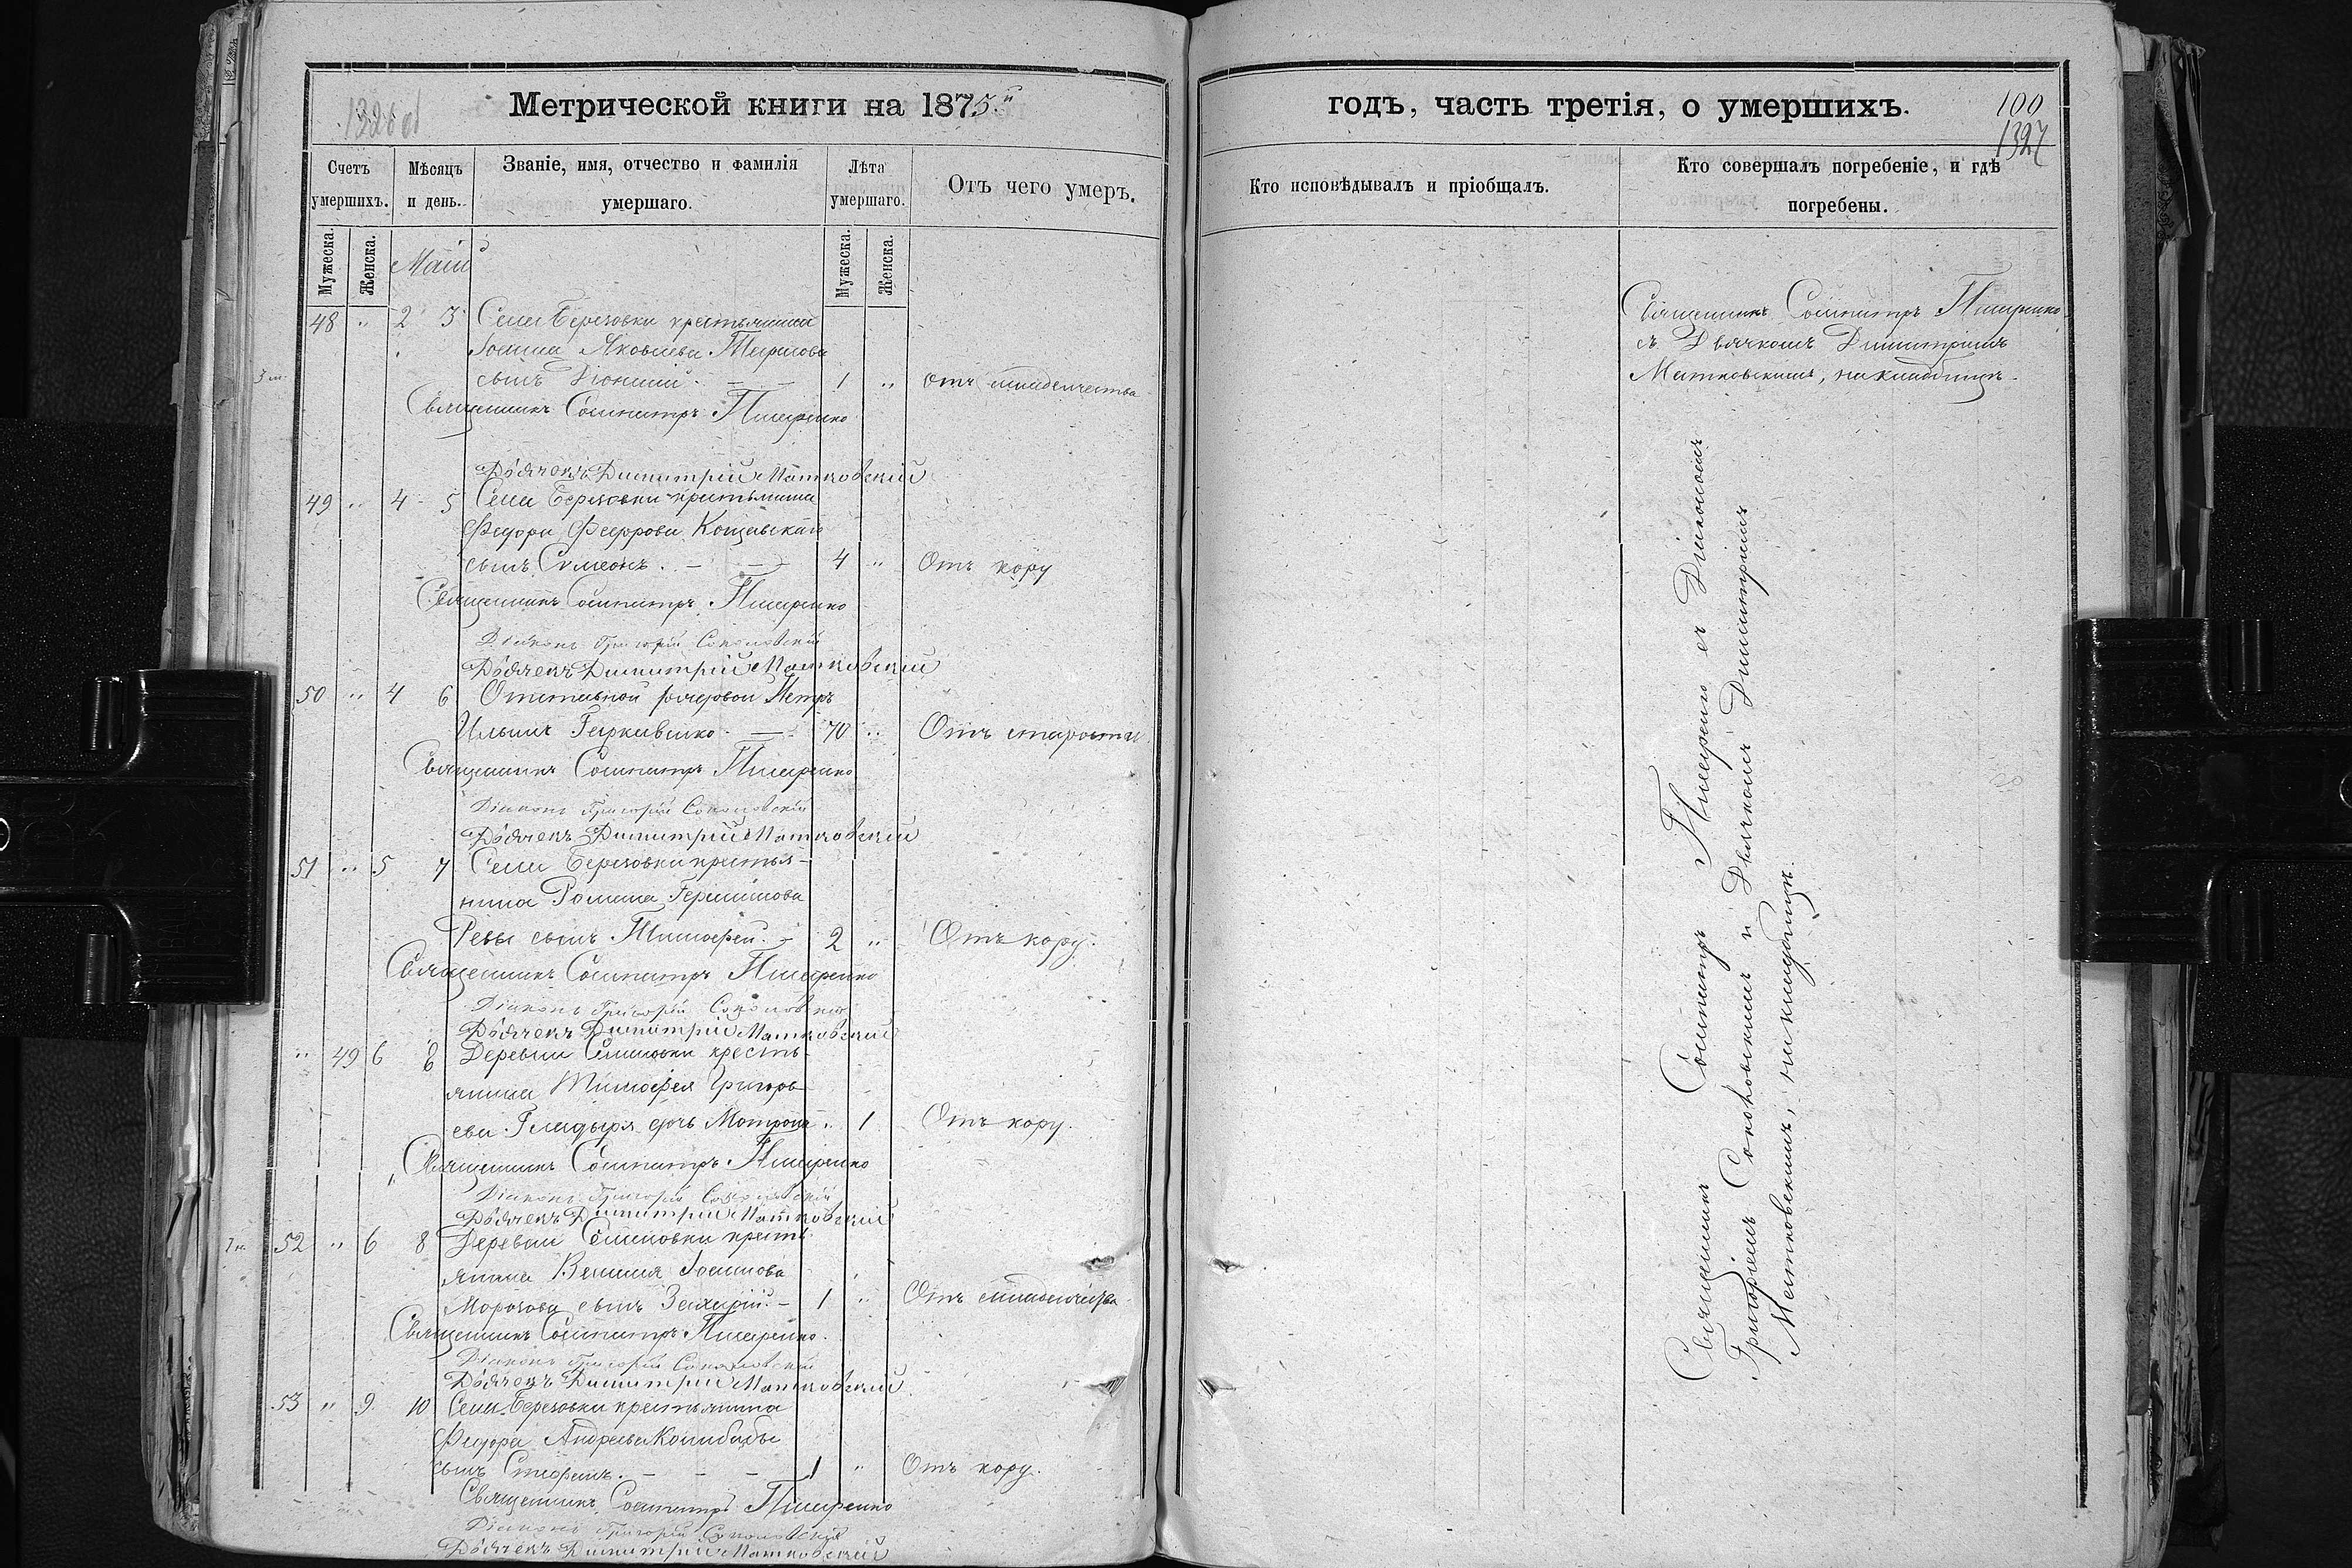 1326 об
Метрической книги на 1875й
Счетъ умершихъ.
Мѣсяцъ и день.
Званіе, имя, отчество и фамилія умершаго.
Лѣта умершаго.
Отъ чего умеръ.
Мужеска.
Женска.
Мужеска.
Женска.
Маій
48 " 2 3 Села Березовки крестьянина
Іоанна Яковлева
сынъ Діонисій. — — 1 " Отъ младенчества
Священникъ Сосипатръ Писаренко
Дьячекъ Димитрій Матковскій
49 " 4 5 Села Березовки крестьянина
Федора Федорова
сынъ Симеонъ. — — 4 " Отъ кору
Священникъ Сосипатръ Писаренко
Діаконъ Григорій Соколовскій
Дьячекъ Димитрій Матковскій
50 " 4 6 Отставной рядовой Петръ
Ильинъ — 70 " Отъ старости
Священникъ Сосипатръ Писаренко
Діаконъ Григорій Соколовскій
Дьячекъ Димитрій Матковскій
51 " 5 7 Села Березовки крестья-
нина Романа Герасимова
Ревы сынъ Тимофей. — 2 " Отъ кору.
Священникъ Сосипатръ Писаренко
Діаконъ Григорій Соколовскій
Дьячекъ Димитрій Матковскій
" 49 6 8 Деревни кресть-
янина Тимофея Григорь-
ева Гладыря дочь Матрона " 1 Отъ кору.
Священникъ Сосипатръ Писаренко
Діаконъ Григорій Соколовскій
Дьячекъ Димитрій Матковскій
52 " 6 8 Деревни кресть-
янина Іоаннова
Морозова сынъ Захарій. — 1 " Отъ младенчества
Священникъ Сосипатръ Писаренко.
Діаконъ Григорій Соколовскій
Дьячекъ Димитрій Матковскій
53 " 9 10 Села Березовки крестьянина
Федора Андреева
сынъ Стефанъ. — — — 1 " Отъ кору.
Священникъ Сосипатръ Писаренко
Діаконъ Григорій Соколовскій
Дьячекъ Димитрій Матковскій
годъ, часть третія, о умершихъ.
100
1327
Кто исповѣдывалъ и пріобщалъ.
Кто совершалъ погребеніе, и гдѣ погребены.
Священникъ Сосипатръ Писаренко
съ Дьячкомъ Димитріемъ
Матковскимъ, на кладбищѣ.
Священникъ Сосипатръ Писаренко съ Діакономъ
Григоріемъ Соколовскимъ и Дьячкомъ Димитріемъ
Матковскимъ, на кладбищѣ.